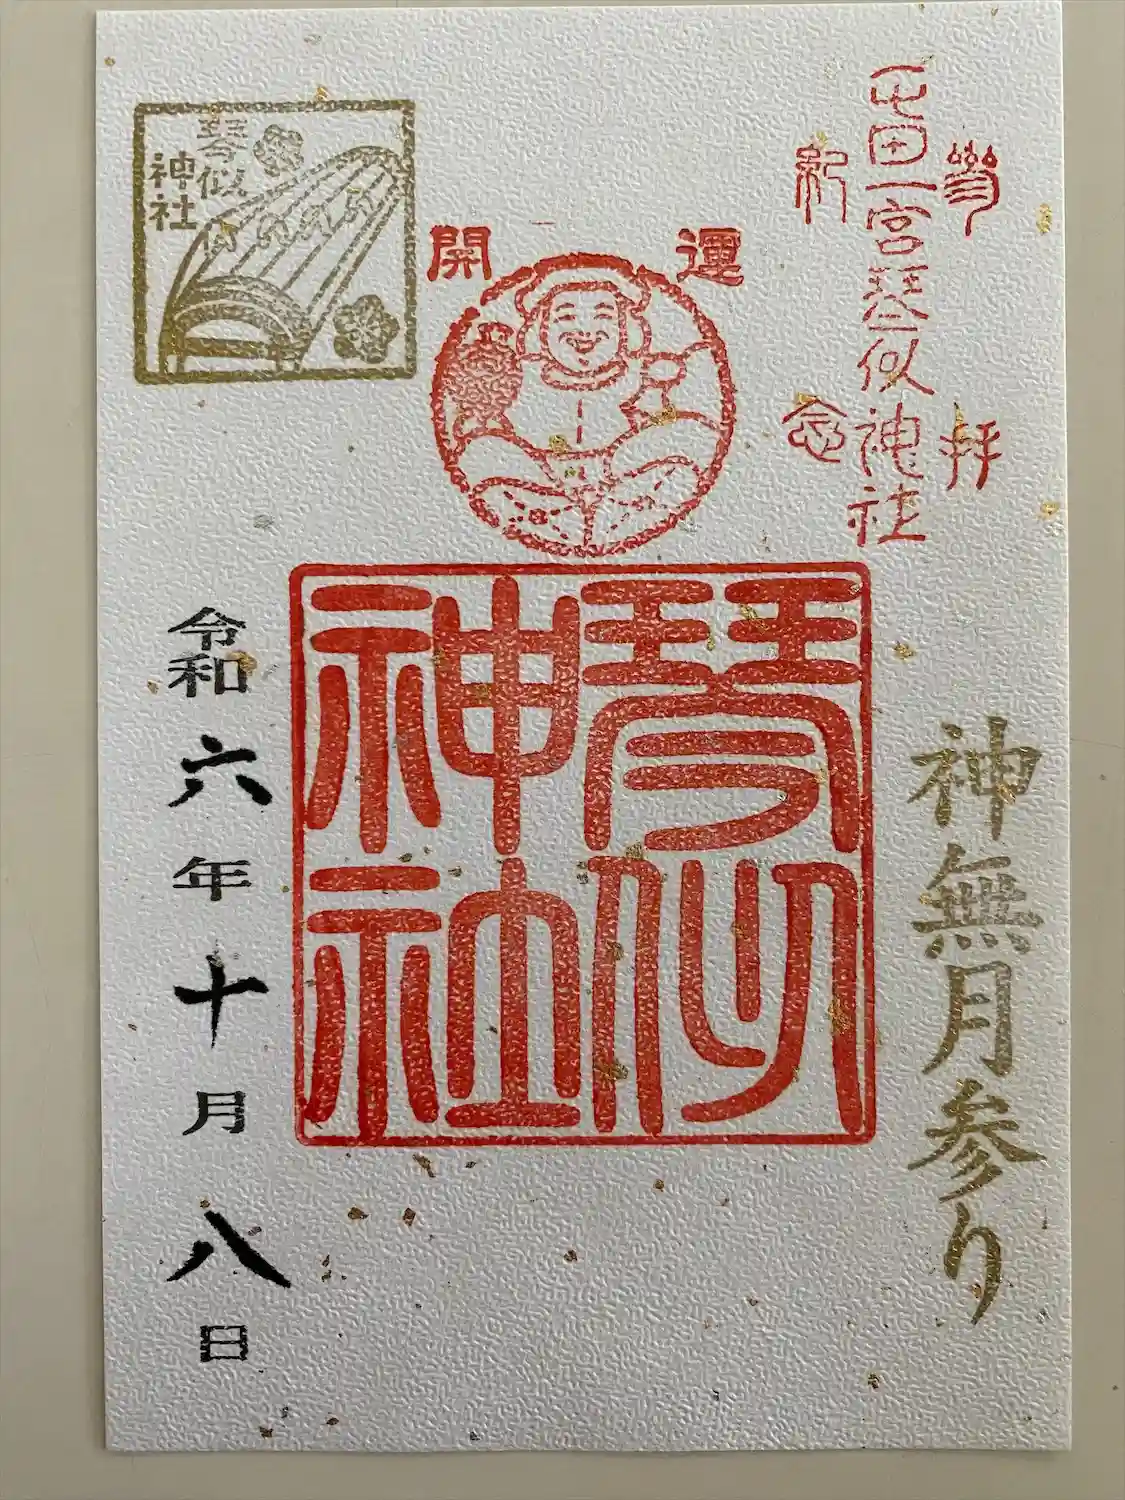 參拝
屯田一宮琴似神社
紀念
開運
琴似
神社
琴似
神社
神無月参り
令和六年十月八日